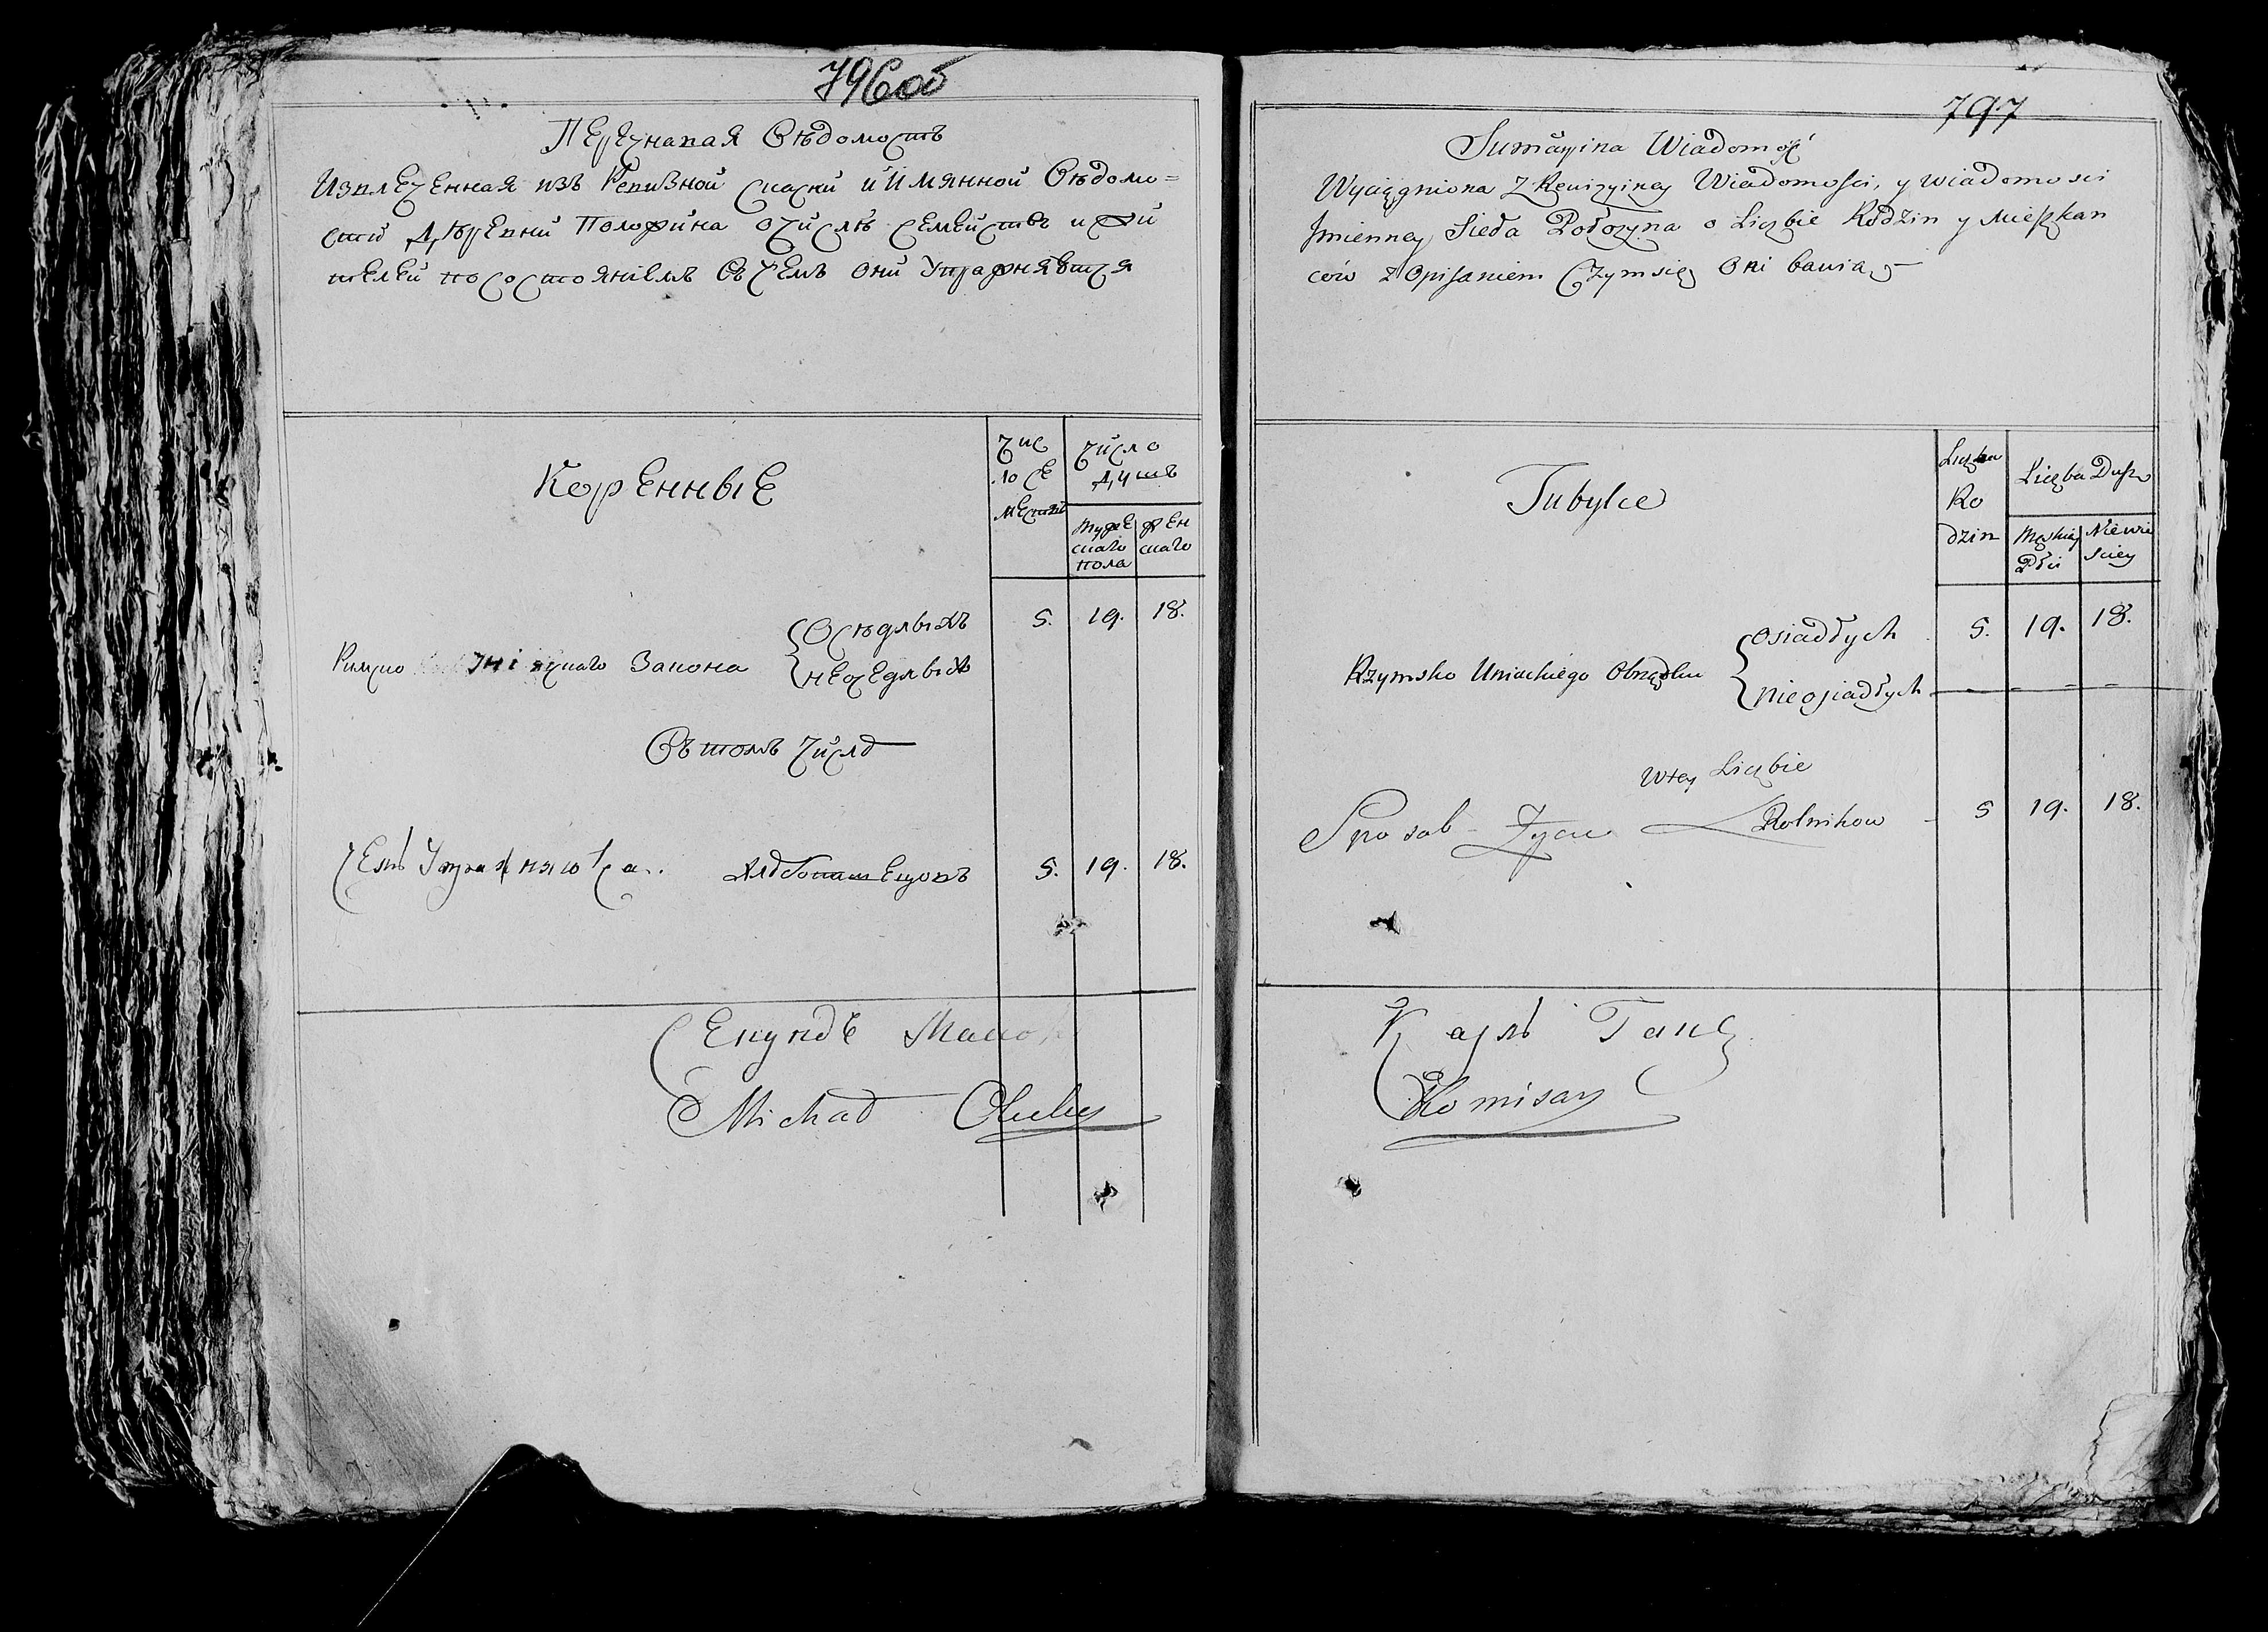 796об
Перечневая Вѣдомость
Извлеченная изъ Ревизной скаски и Имянной Вѣдомо=
сти Дѣревни Положина о числѣ семействъ и жи
телей по состояніемъ въ чемъ они Упражнявтся
Коренные
Чис
ло се
мество
Число
Душъ
Муже
скаго
пола
жен
скаго
Римско Уніяцкаго Закона
Осѣдлыхъ 5. 19. 18.
неоседлыхъ
Въ томъ Числѣ
Чемъ Упражняются.. Хлѣбопашецовъ 5. 19. 18.
Michał
797
Sumaryina Wiadomość
Wyciągniona z Rewizyiney Wiadomości, y wiadomosci
Imienney Sieła Połozyna o Liczbie Rodzin y Mieszkan
ców z Opisaniem Czym się Oni bawią
Tubylce
Liczba
Ro
dzin
Liczba Dusz
Męskiey
Płci
Niewie
sciey
Rzymsko Uniackiego Obrządku
osiadłych 5. 19. 18.
nieosiadłych - - - -
w tey Liczbie
Sposob Zycia Rolnikow - 5 19. 18.
Карлъ Ганс
Komisarz